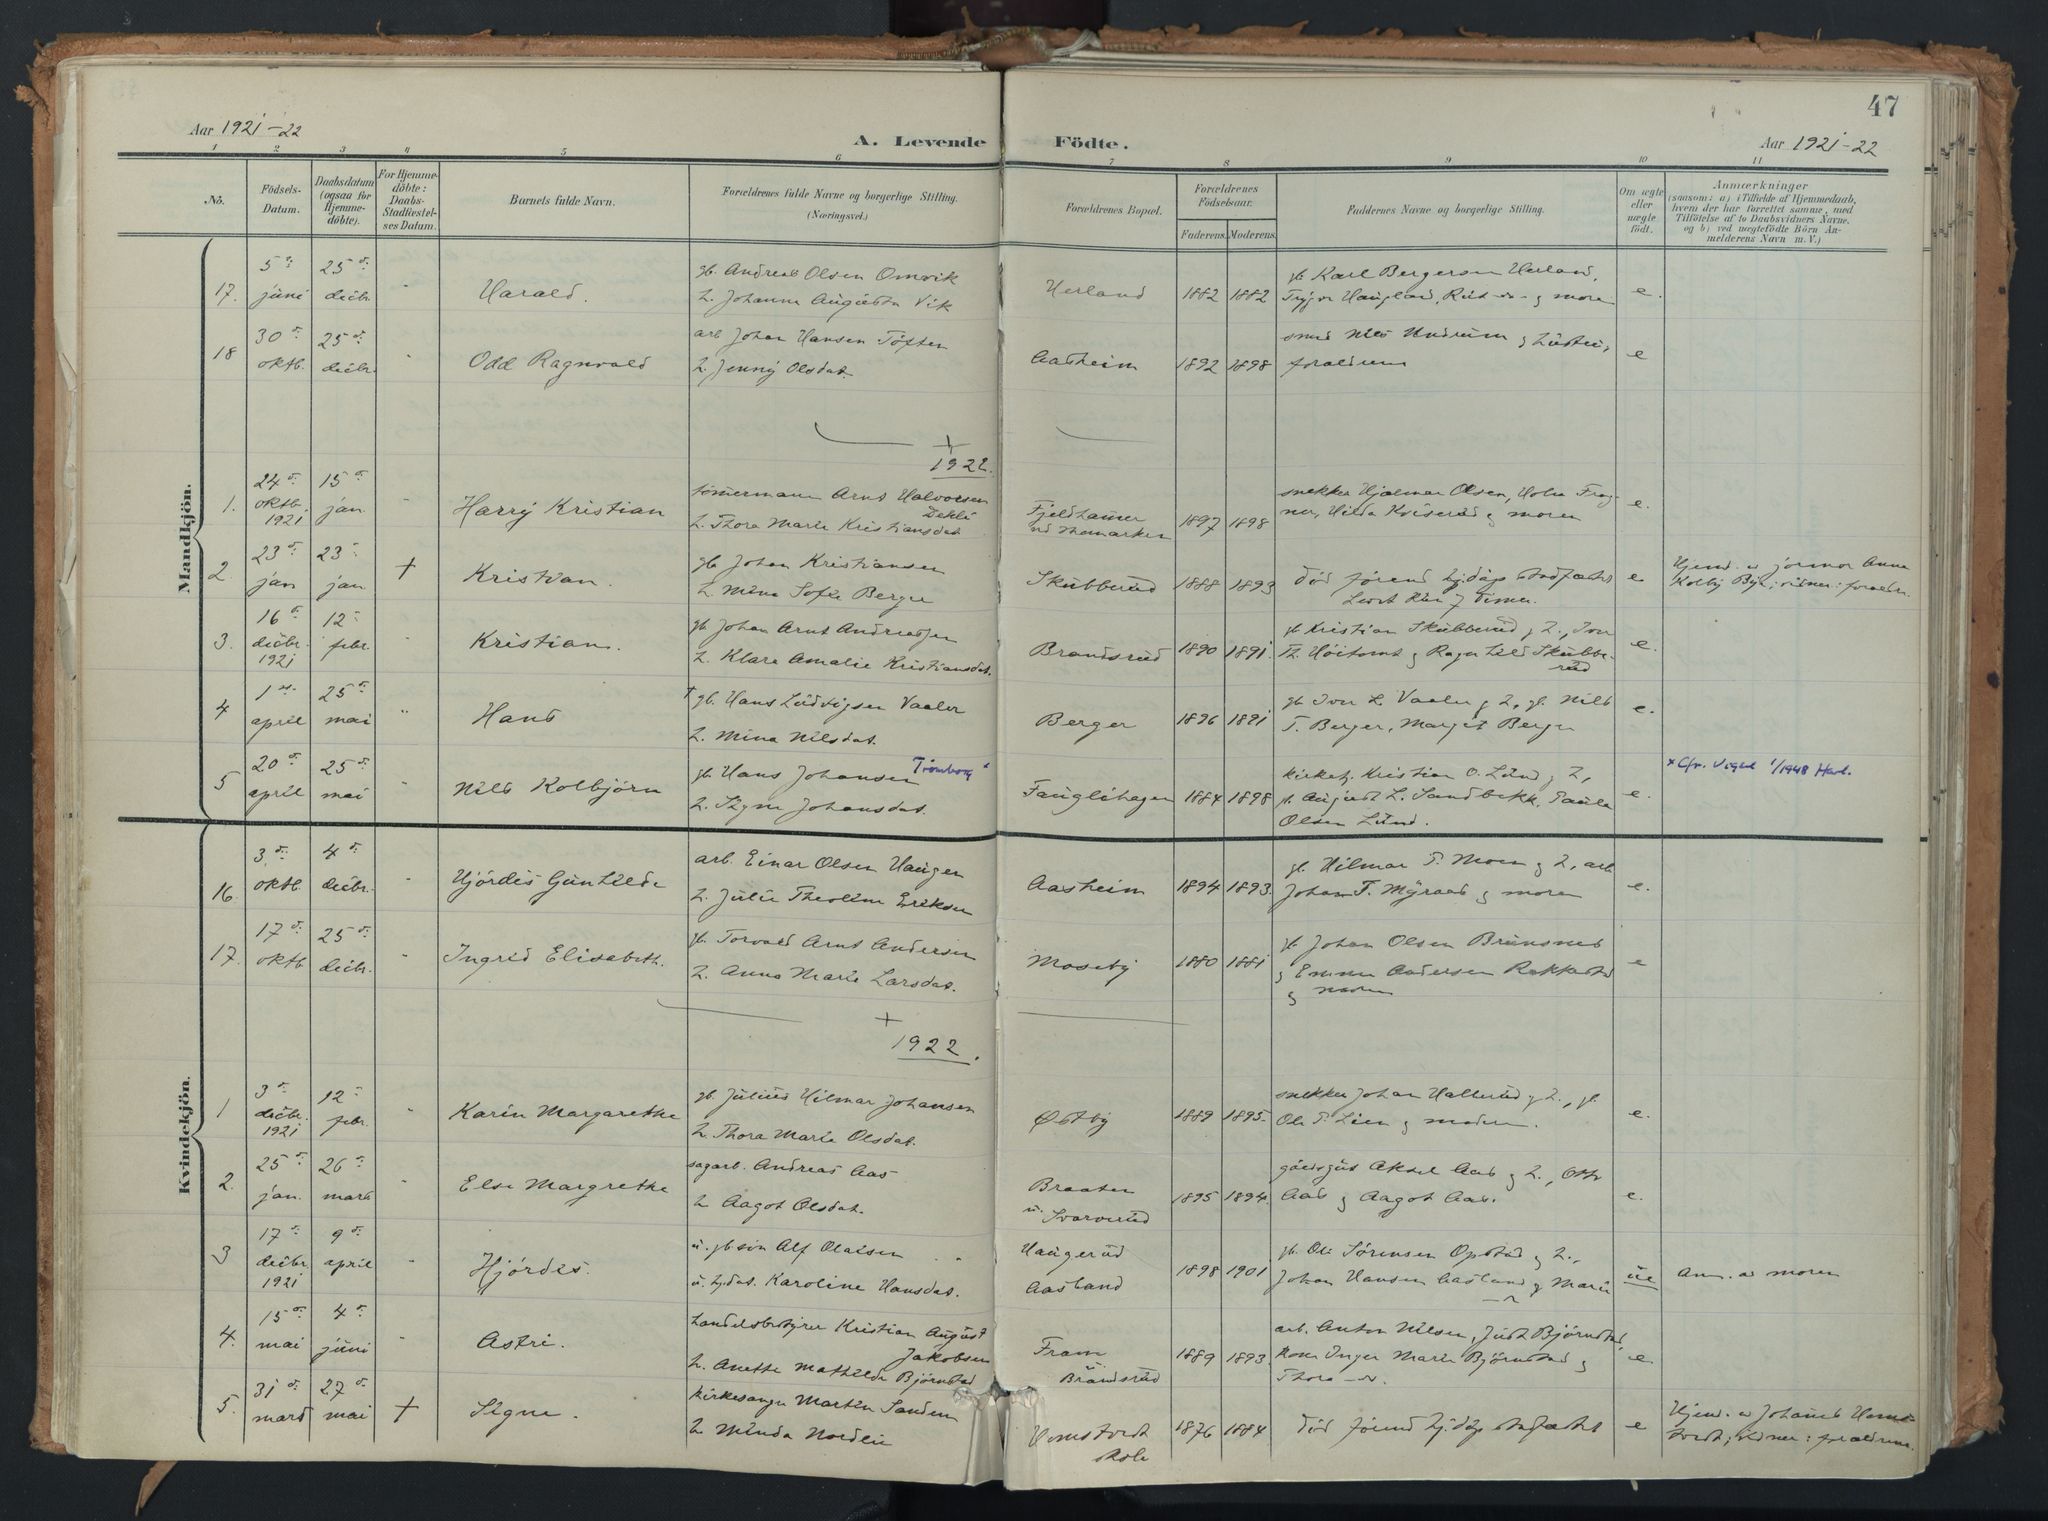 47
Aar 1921-22
A. Levende Födte.
Aar 1921-22
1 2 3 4 5 6 7 8 9 10 11
No.
Födsels-Datum.
Daabsdatum (ogsaa for Hjemmedöbte).
For Hjemmedöbte: Daabs-Stadfæstelses Datum.
Barnets fulde Navn.
Forældrenes fulde Navne og borgerlige Stilling. (Næringsvei.)
Forældrenes Bopæl.
Forældrenes Födselsaar.
Faderens. Moderens.
Faddernes Navne og borgerlige Stilling.
Om ægte eller uægte født.
Anmærkninger
(saasom: a) i Tilfælde af Hjemmedaab,
hvem der har forrettet samme, med
Tilföielse af to Daabsvidners Navne.
og b) ved uægtefödte Börn Anmelderens Navn m. V.)
Mandkjön.
17. 5 juni 25 decbr. Harald. gb. Andreas Olsen Omvik
h. Johanne Augusta Vik
Herland 1882 1882 gb Karl Bergersen Herland,
Haugland, & moren e.
18 30 oktb. 25 decbr. Odd Ragnvald arb Johan Hansen Töften
h. Jenny Olsdat.
Aasheim 1892 1898 smed Nils Undrum & hustru,
forældrene e
1922.
1. 24 oktb. 1921 15 jan. Harry Kristian tömmermann Arnt Halvorsen
h. Thora Marie Kristiansdat.
Fjeldhammer
1897 1898 snekker Hjalmar Olsen,
Hilda & moren e.
2. 23 jan 23 jan + Kristian. gb. Johan Kristiansen
h. Mina Sofie Berger
Skubberud 1888 1893 död förend hj.daap stadfæstet
e Hjemd. av jormor Anna
Kolby vidner: forældre.
3. 16 decbr. 1921 12 febr. Kristian. gb. Johan Arnt Andreassen
h. Klara Amalie Kristiansdat.
Brandsrud 1890 1891. gb Kristian Skubberud & h.,
& Ragnhild Skubberud e.
4 1 april 25 mai Hans † gb. Hans Ludvigsen Vaaler
h. Mina Nilsdat.
Berger 1896 1891 gb Iver L. Vaaler & h, gb. Nils
T. Berger, Margit Berger e.
5 20 april 25 mai Nils Kolbjörn gb. Hans Johansen Trömborg x
h. Signe Johansdat.
Fauglihagen 1884 1898 kirketj. Kristian O. Lund & h,
August L. Sandbekk. Paula
Olsen Lund. e.
x Cfr. Vigsel 1/1948 Hærl.
Kvindekjön.
16. 3 oktb. 4 decbr. Hjördis Gunhilde arb. Einar Olsen Haugen
h. Julie Theoline Eriksen
Aasheim 1894 1893. gb. Hilmar T. Moen & h, arb
Johan T. Myraas & moren e.
17. 17 oktb. 25 decbr. Ingrid Elisabeth. gb. Torvald Arnt Andersen
h. Anna Marie Larsdat.
Moseby 1880 1881 gb Johan Olsen Brunsnes
& Emma Andersen Rakkestad
& moren e
1922.
1 3 decbr. 1921 12 febr. Karin Margarethe gb. Julius Hilmar Johansen
h. Thora Marie Olsdat.
Østby 1889 1895. snekker Johan Hallerud & h., gb.
Ole T. Lien & moderen. e.
2. 25 jan. 26 mars Else Margrethe sagarb. Andreas Aas
h Aagot Olsdat.
Braaten
u. Svarverud
1895 1894. gaardsgut Aksel Aas & h., Otto
Aas & Aagot Aas. e.
3 17 decbr 1921 9 april Hjördis. u. gb.sön Alf Olaisen
u. hj.dat. Karoline Hansdat.
Haugerud
Aasland
1898 1901 gb. Ole Sörensen Opstad & h.,
Johan Hansen Aasland & Marie
ue Anm. av moren
4. 15 mai 4 juni Astri. handelsbestyrer Kristian August
Jakobsen
h. Anette Mathilde Björnstad
Fram
u. Brandsrud
1889 1893. arb. Anton Nilsen, Björnstad,
kone Inger Marie Björnstad &
Thora e
5. 31 mars 27 mai + Signe. kirkesanger Martin Sandem
h Minda Nordlie
skole
1876 1884 död förend hj.daap stadfæstet e
Hjemd. av Johannes
vidner: forældrene.